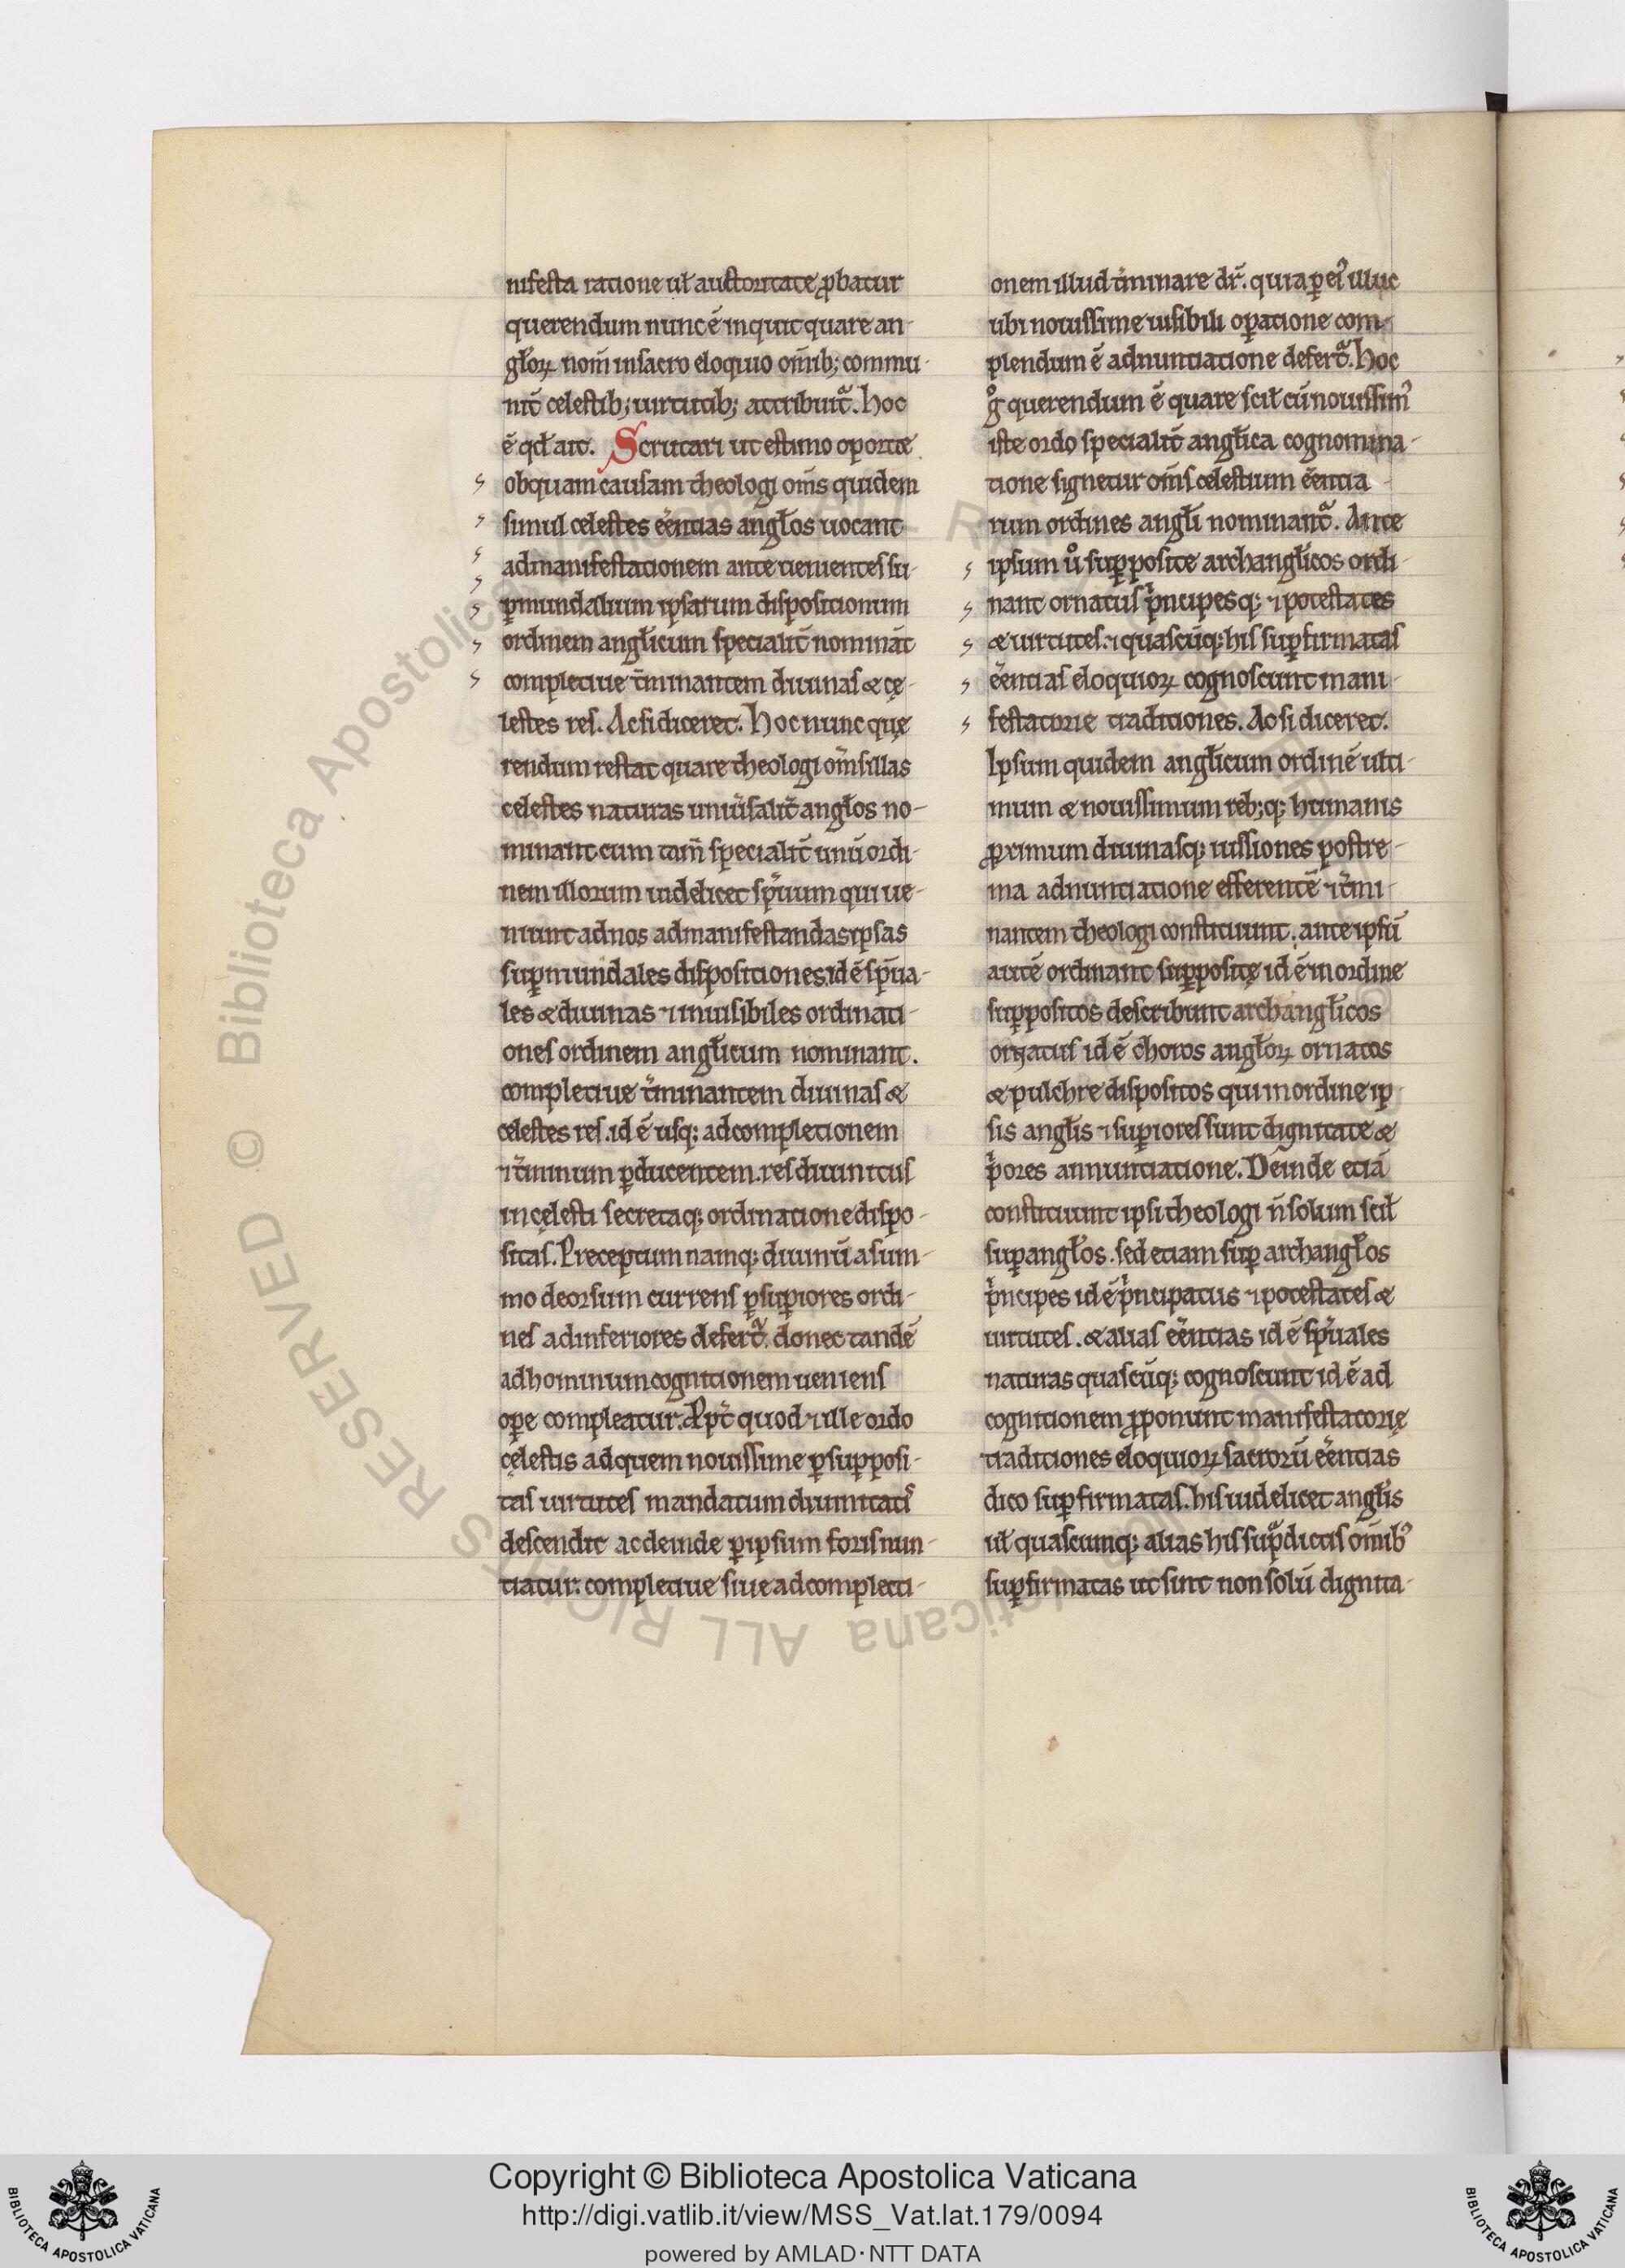 nifesta ratione uł auctoritate ꝓbatur
querendum nunc ē inquit quare an-
gl̓oꝝ nom̄ in sacro eloquio om̄ib; commu-
nit̄ celestib; uirtutib; attribuit᷑. hoc
ē qđ ait. Scrutari ut estimo oportet
ob quam causam theologi om̄s quidem
simul celestes eēntias angl̓os uocant
ad manifestationem ante uenientes su-
ꝑmundalium ipsarum dispositionum
ordinem angl̓icum specialit̄ nomināt
completiue t̄minantem diuinas & cę-
lestes res. Ac si diceret. Hoc nunc quę
rendum restat quare theologi om̄s illas
celestes naturas uniūsalit̄ angl̓os no-
minant cum tam̄ specialit̄ unū ordi-
nem illorum uidelicet sp̄uum qui ue-
niunt ad nos ad manifestandas ipsas
suꝑmundales dispositiones id ē sp̄ua-
les & diuinas ⁊ inuisibiles ordinati-
ones ordinem angl̓icum nominant.
completiue t̄minantem diuinas &
celestes res. id ē usq; ad completionem
⁊ t̄minum ꝑducentem. res diuinitus
in cęlesti secretaq; ordinatione dispo-
sitas. Preceptum namq; diuinū a sum-
mo deorsum currens ꝑ suꝑiores ordi-
nes ad inferiores defert᷑. donec tandē
ad hominum cognitionem ueniens
oꝑe compleatur. Ap̄t quod ⁊ ille ordo
cęlestis ad quem nouissime ꝑ suꝑposi-
tas uirtutes mandatum diuinitatis
descendit ac deinde ꝑ ipsum foris nun-
tiatur: completiue siue ad completi-
onem illud t̄minare dr̄. quia ꝑ ei᷒ illuc
ubi nouissime uisibili oꝑatione com-
plendum ē adnuntiatione defert᷑. Hoc
gͦ querendum ē quare scił cū nouissim᷒
iste ordo specialit̄ angl̓ica cognomina-
tione signetur om̄s celestium eēntia-
rum ordines angl̓i nominant᷑. Ante
ipsum ůo suꝑposite archangl̓icos ordi-
nant ornatus p̄ncipesq; ⁊ potestates
& uirtutes. ⁊ quascūq; his suꝑfirmatas
eēntias eloquioꝝ cognoscunt mani-
festatorie traditiones. Ac si diceret.
Ipsum quidem angl̓icum ordinē ulti-
mum & nouissimum reb;q; humanis
ꝓximum diuinasq; iussiones postre-
ma adnuntiatione efferentē ⁊ t̄mi-
nantem theologi constituunt. ante ipsū
autē ordinant suꝑpositę id ē in ordine
suꝑpositos describunt archangl̓icos
ornatus id ē choros angl̓oꝝ ornatos
& pulchre dispositos qui in ordine ip
sis angl̓is ⁊ suꝑiores sunt dignitate &
p̄ores annuntiatione. Deinde etiā
constituunt ipsi theologi n̄ solum scił
suꝑ angl̓os. sed etiam suꝑ archangl̓os
p̄ncipes id ē p̄ncipatus ⁊ potestates &
uirtutes. & alias eēntias id ē sp̄uales
naturas quascūq; cognoscunt id ē ad
cognitionem ꝓponunt manifestatorię
traditiones eloquioꝝ sacrorū eēntias
dico suꝑfirmatas. his uidelicet angl̓is
uł quascumq; alias his sup̄dictis om̄ib᷒
suꝑfirmatas ut sint non solū dignita-
Copyright © Biblioteca Apostolica Vaticana
http://digi.vatlib.it/view/MSS_Vat.lat.179/0094
powered by AMLAD·NTT DATA
BIBLIOTECA APOSTOLICA VATICANA
BIBLIOTECA APOSTOLICA VATICANA